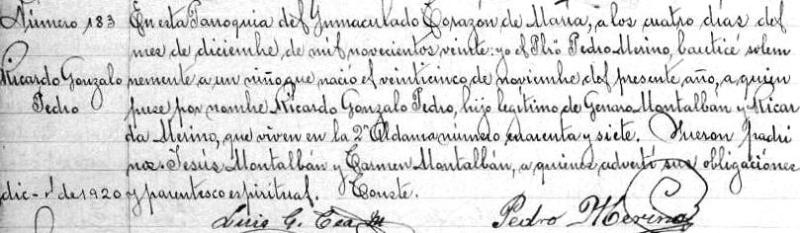 Número 183
Ricardo Gonzalo
Pedro
dic- 1 de 1920
En esta Parroquia del Inmaculado Corazón de María, a los cuatro días del
mes de diciembre, de mil novecientos veinte: yo el Pbro Pedro Merino, bauticé solem
nemente a un niño que nació el veinticinco de noviembre del presente año, a quien
puse por nombre Ricardo Gonzalo Pedro, hijo legítimo de Genaro Montalbán y Ricar
da Merino, que viven en la 2ª Aldama número cuarenta y siete. Fueron padri
nos Jesús Montalbán y Carmen Montalbán, a quienes advertí sus obligaciones
y parentesco espiritual. Conste.
Luis G. Pedro Merino